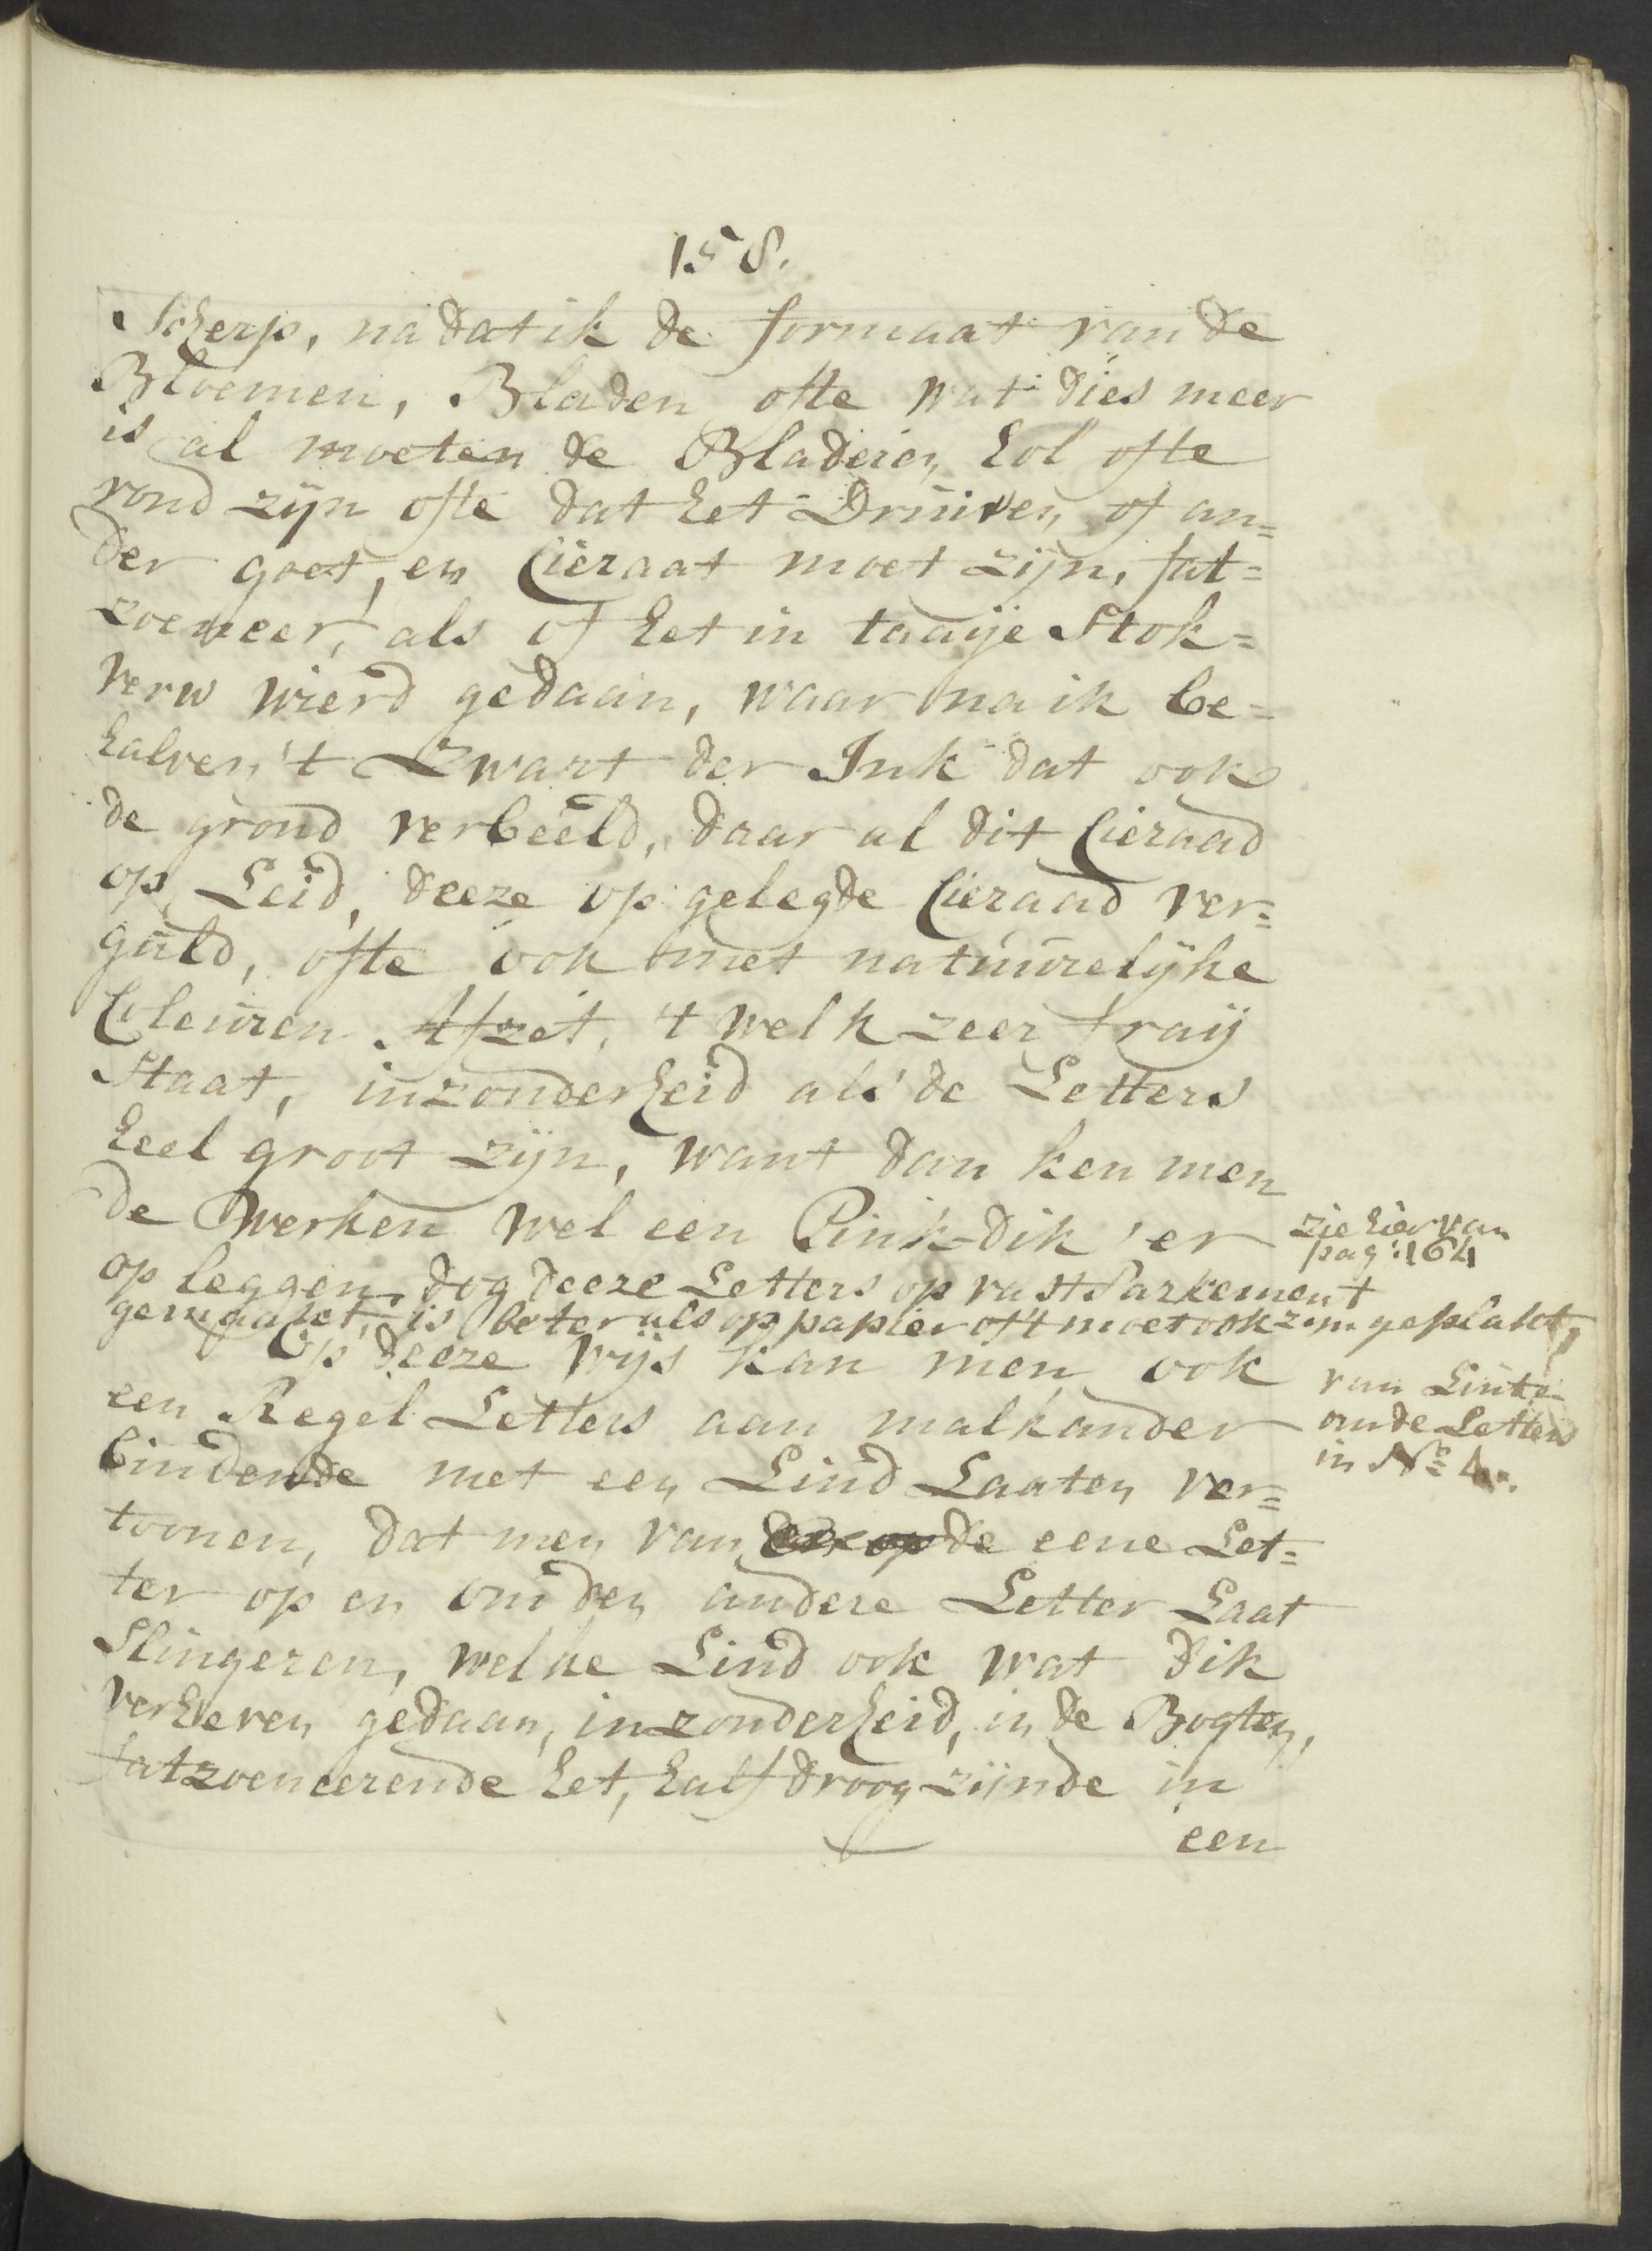 158.
Scherp, na dat ik de formaat van de
Bloemen, Bladen ofte wat dies meer
is al moeten de Bladeren hol ofte
rond zijn ofte dat het Druiven of an=
der goet, en Cieraat moet zijn, fat=
zoeneer, als of het in taaije Stok=
verw wierd gedaan, waar na ik be=
halven 't Zwart der Ink dat ook
de grond verbeeld, daar al dit Cieraad
op Leid, deeze op gelegde Cieraad ver=
guld, ofte ook met natuurelijke
Coleuren Afzet, 't welk zeer fraij
Staat, inzonderheid als de Letters
heel groot zijn, want dan ken men
de Werken wel een Pink-dik 'er
zie hier van
pag: 164
op leggen, dog deeze Letters op vast Parkement
gemaaket, is beter als op papier oft moet ook zijn geplakt,
Op deeze wijs kan men ook
een Regel Letters aan malkander
van Linte
om de Letters
in No 4.
bindende met een Lind Laaten ver=
toonen, dat men van de eene Let=
ter op en om den andere Letter Laat
Slingeren, welke Lind ook wat dik
verheven gedaan, inzonderheid, in de Bogten,
fatzoeneerende het, half droog zijnde in
een